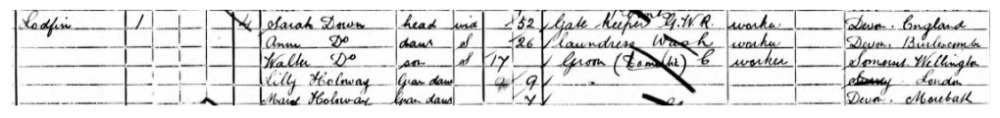 1 4 Sarah Down head wid 52 Gate Keeper G.W.R. worker Devon, England
Annie Do daur S 26 laundress Wash worker Devon, Burlescombe
Walter Do son S 17 Groom (Domestic) worker Somerset Wellington
Lilly Holoway Gran daur 9 London
Holoway Gran daur 7 Devon, Morebath